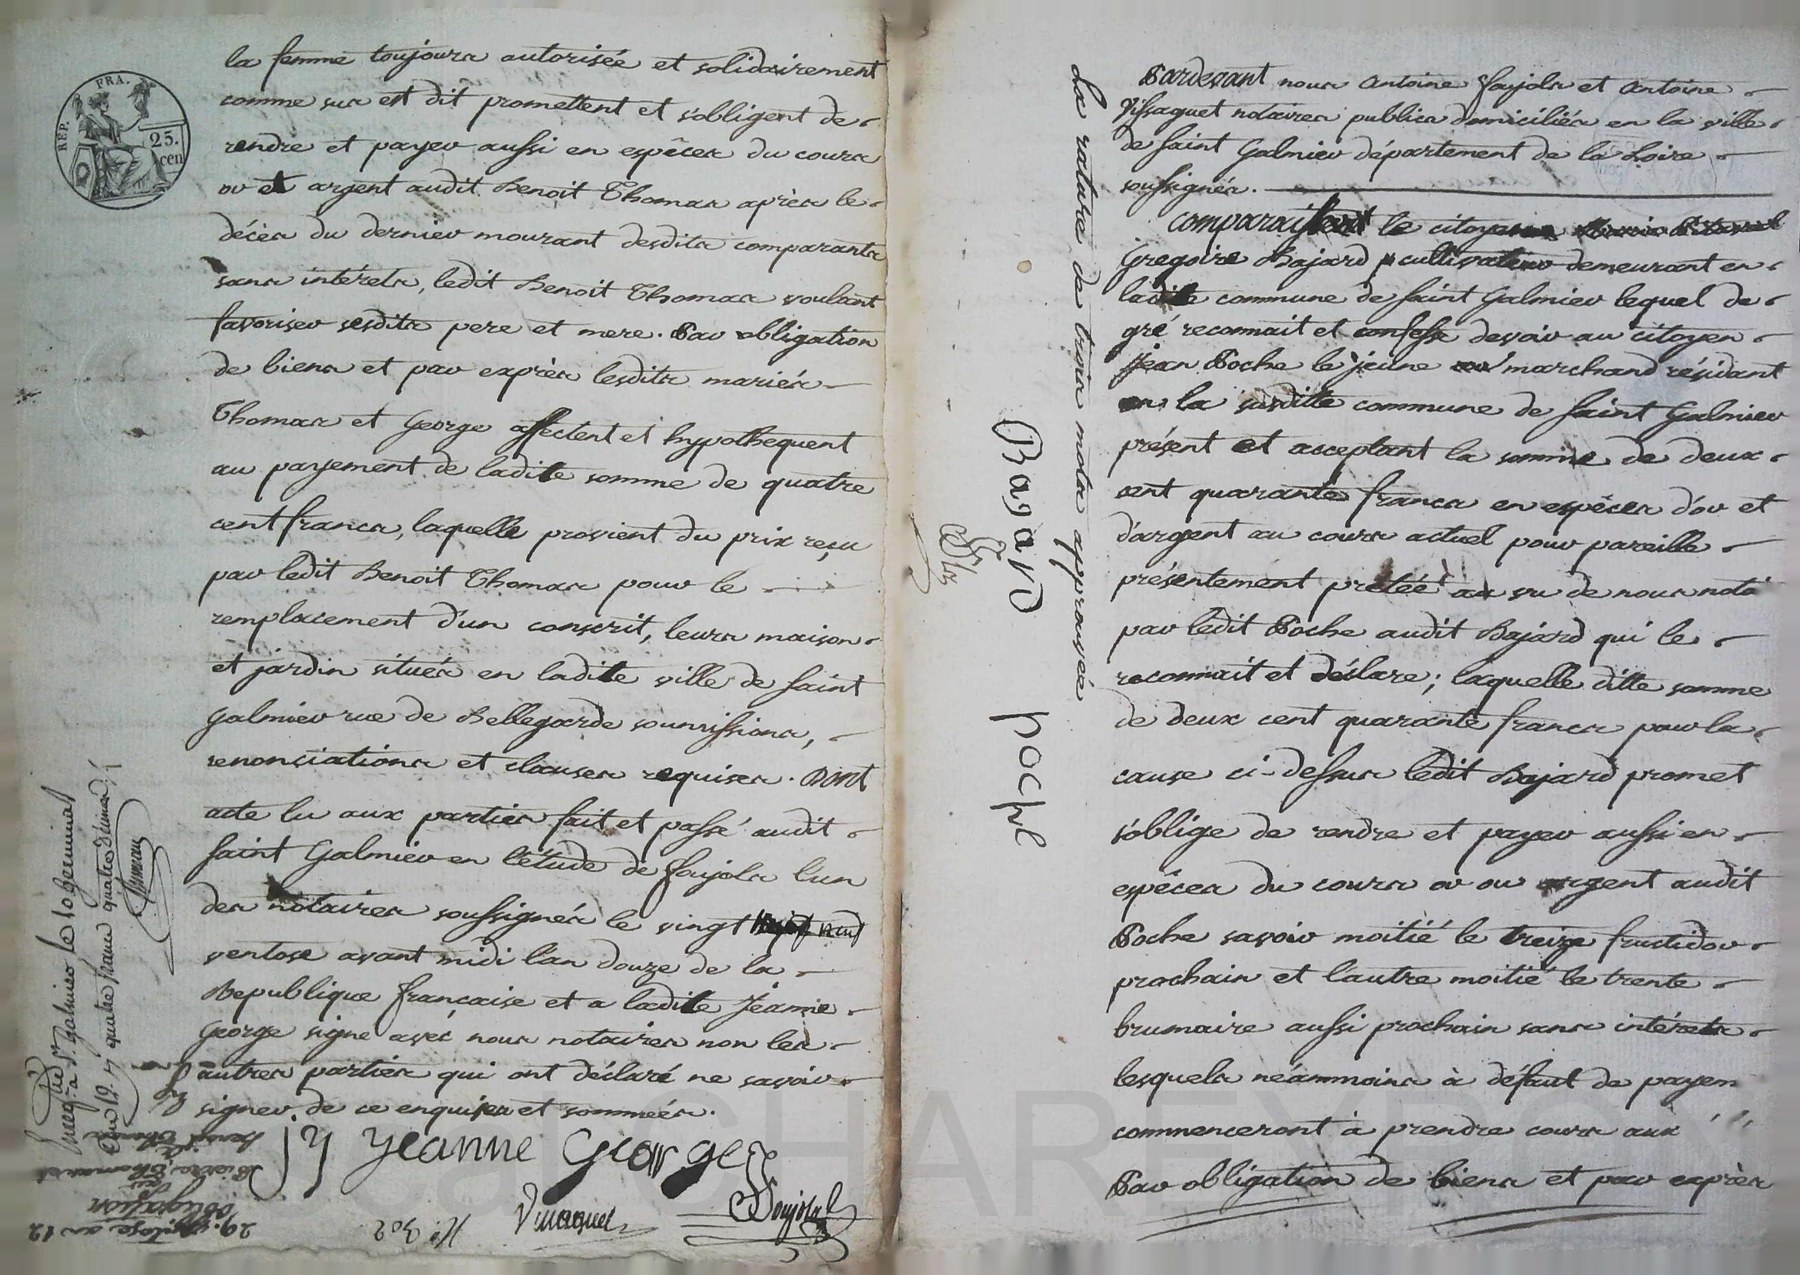 REP. FRA.
25. cen
la femme toujours autorisée et solidairement
comme sus est dit promettent et s'obligent de
rendre et payer aussi en espêces du cours
or et argent audit Benoit Thomas après le
décès du dernier mourant desdits comparants
sans intérets, ledit Benoit Thomas voulant
favoriser sesdits pere et mere. Par obligation
de biens et par exprès lesdits mariés
Thomas et George affectent et hypothequent
au payement de ladite somme de quatre
cent francs, laquelle provient du prix reçu
par ledit Benoit Thomas pour le
remplacement d'un conscrit, leurs maison
et jardin situés en ladite ville de saint
Galmier rue de Bellegarde soumissions,
renonciations et clauses requises. Dont
acte lu aux parties fait et passé audit
saint Galmier en l'étude de Faujols l'un
des notaires soussignés le vingt neuf
ventose avant midi l'an douze de la
Republique française et a ladite Jeanne
George signé avec nous notaires non les
autres parties qui ont déclaré ne savoir
signer de ce enquises et sommées.
jy Jeanne George
Vissaguet
Faujols
N.º 302
Enreg. à St. Galmier le 10 germinal
an 12. quatre francs quatre décimes
29. ventose an 12
obligation
Pierre Thomas et
Benoit Thomas
Pardevant nous Antoine Faujols et Antoine
Vissaguet notaires publics domiciliés en la ville
de saint Galmier département de la Loire
soussignés.
Comparaissant le citoyen
Gregoire Bajard cultivateur demeurant en
ladite commune de saint Galmier lequel de
gré reconnait et confesse devoir au citoyen
Jean Poche le jeune marchand résidant
en la susditte commune de saint Galmier
présent et acceptant la somme de deux
cent quarante francs en espêces d'or et
d'argent au cours actuel pour pareille
présentement pretée au vu de nous notes
par ledit Poche audit Bajard qui le
reconnait et déclare; laquelle ditte somme
de deux cent quarante francs pour la
cause ci-dessus ledit Bajard promet
s'oblige de rendre et payer aussi en
espêces du cours or ou argent audit
Poche savoir moitié le treize fructidor
prochain et l'autre moitié le trente
brumaire aussi prochain sans intérets
lesquels néammoins à défaut de payem
commenceront à prendre cours aux
Par obligation de biens et par exprès
La rature de trois mots approuvée
Bajard poche
la CHAREYRON